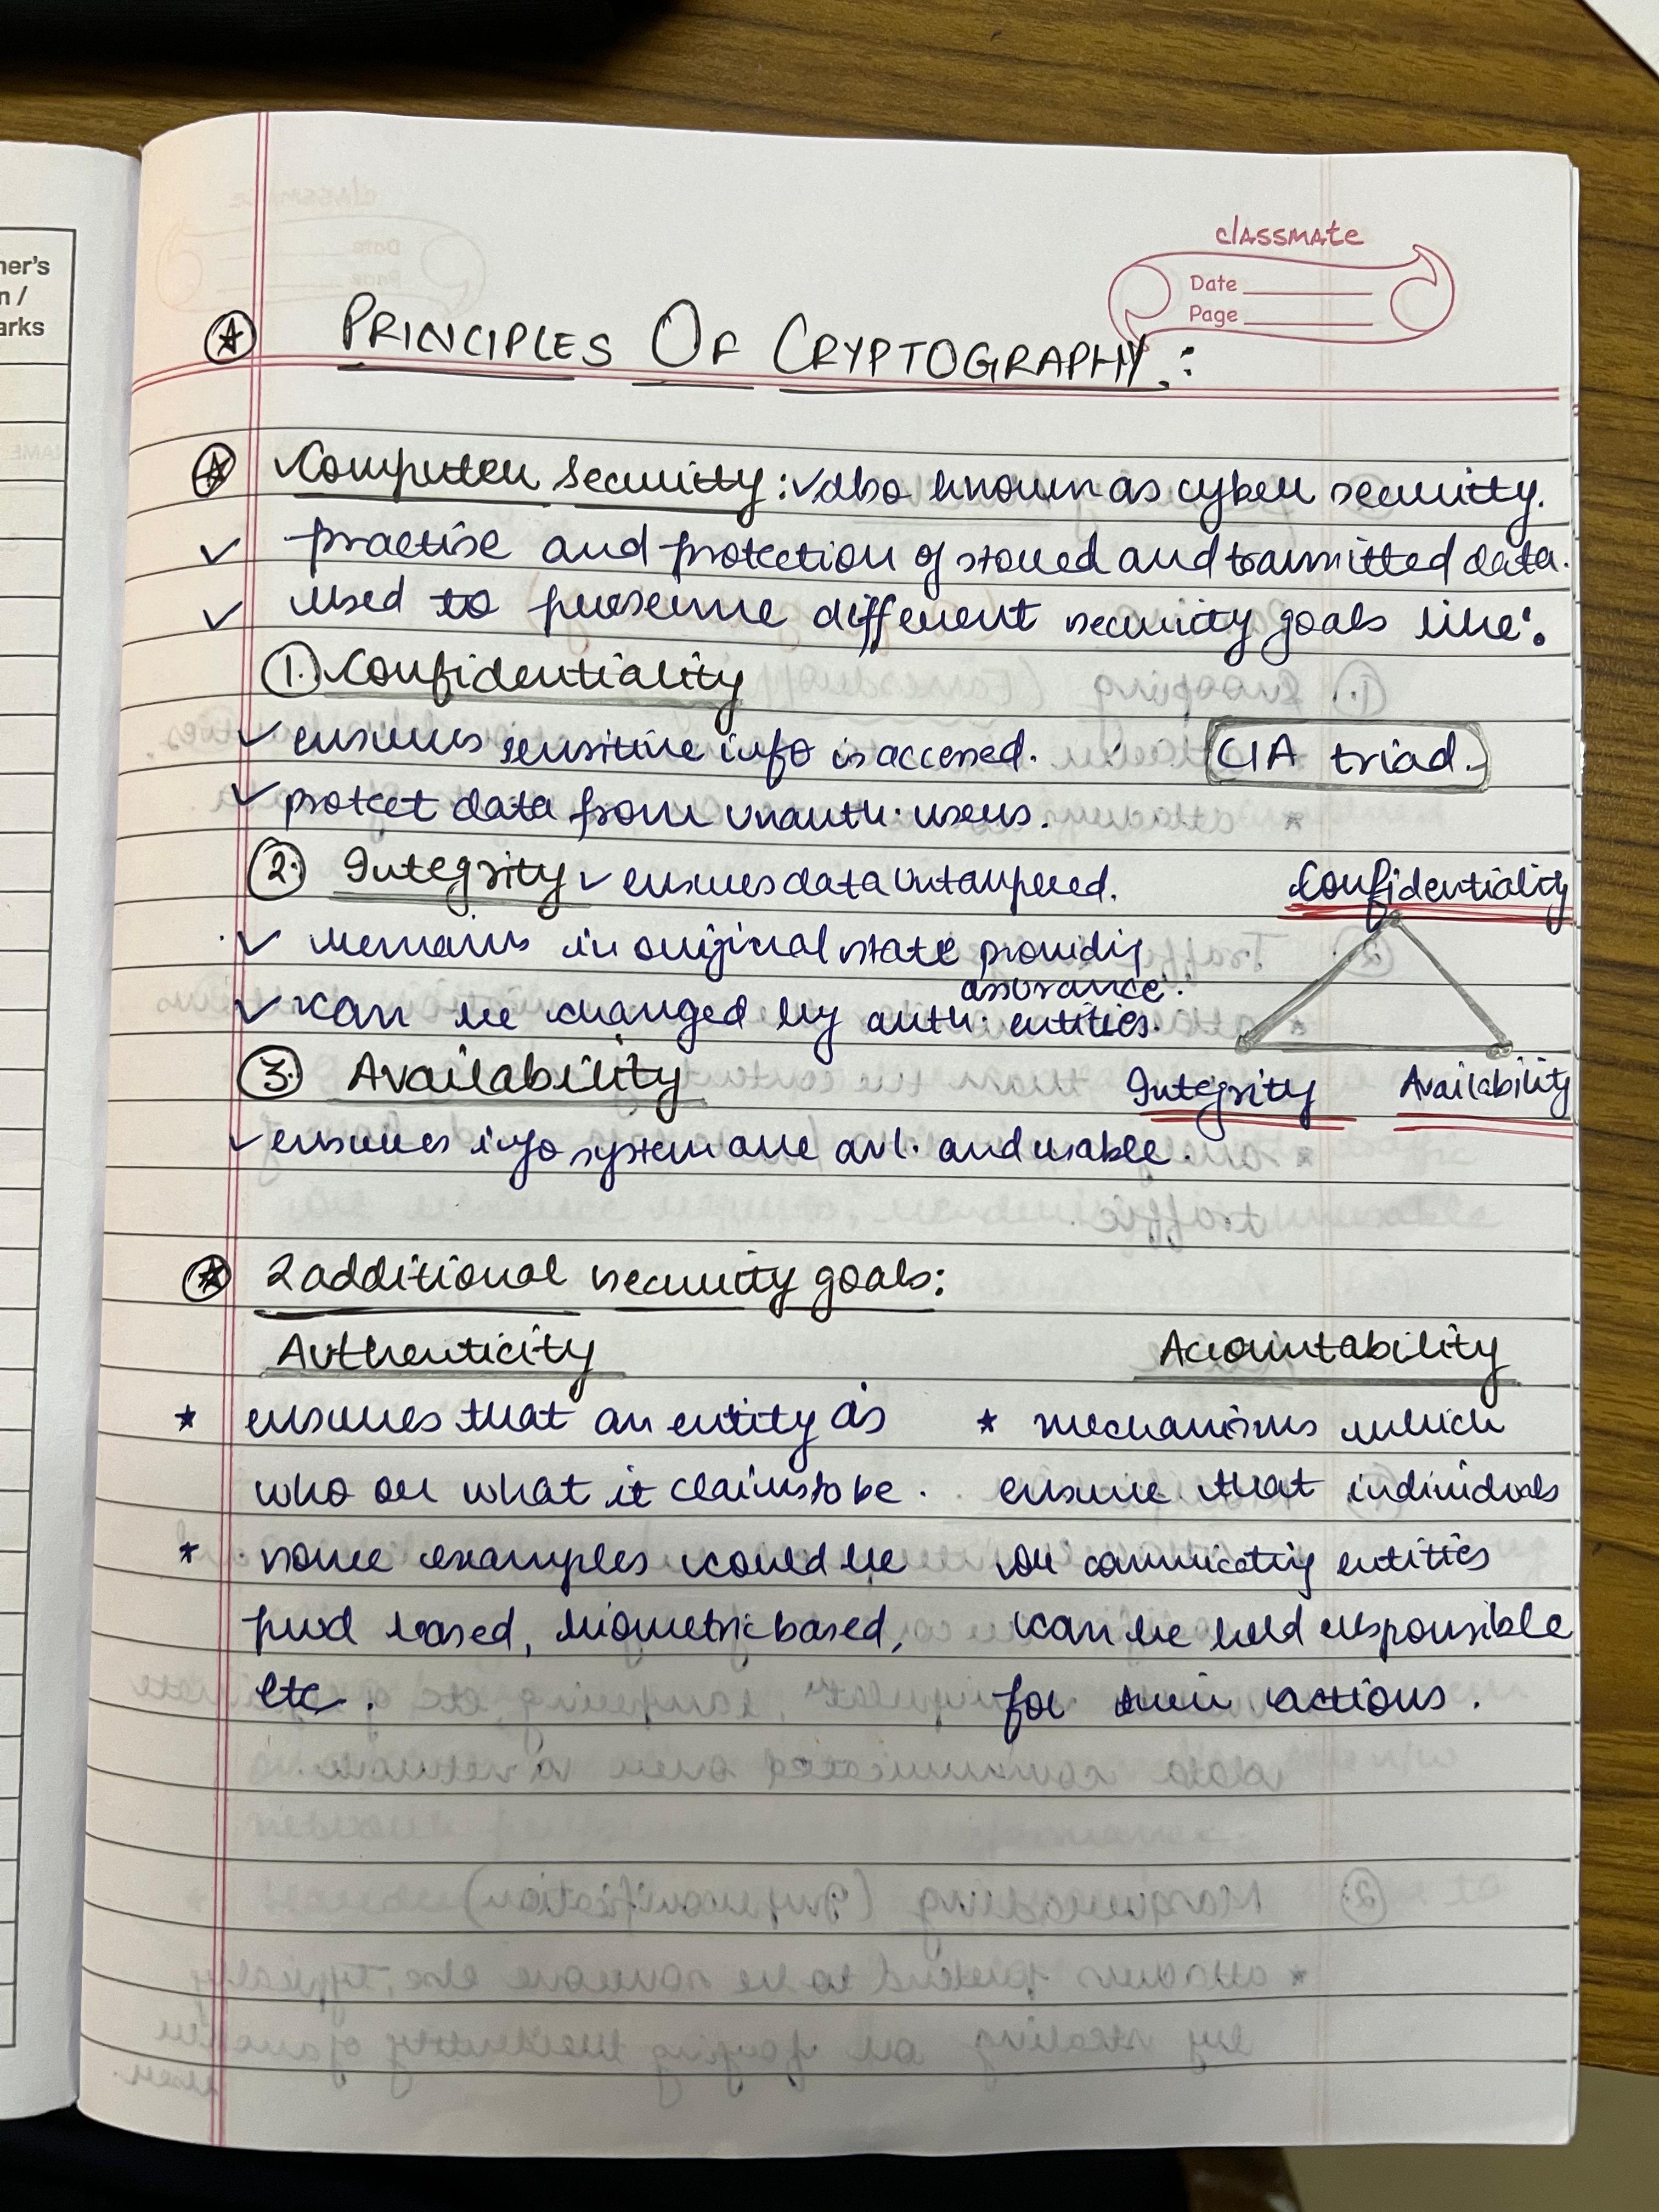 classmate
Date
Page
PRINCIPLES OF CRYPTOGRAPHY :
Computer Security : ✓ also known as cyber security.
✓ practise and protection of stored and transmitted data.
✓ used to preserve different security goals like:
1. Confidentiality
✓ ensures sensitive info is accessed.
CIA triad.
✓ protect data from unauth. users.
2. Integrity ✓ ensures data untampered.
✓ remains in original state providing
assurance.
✓ can be changed by auth. entities.
Confidentiality
Integrity Availability
3. Availability
✓ ensures info system are avl. and usable.
2 additional security goals:
Authenticity
* ensures that an entity is
who or what it claims to be.
* some examples could be
pwd based, biometric based,
etc.
Accountability
* mechanisms which
ensure that individuals
or commicating entities
can be held responsible
for their actions.
ner's
n /
arks